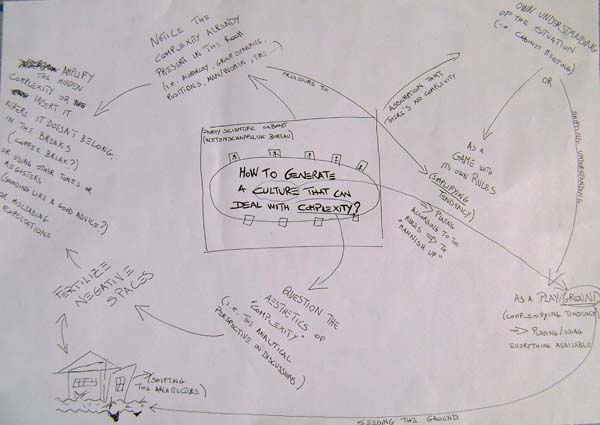 NOTICE THE
COMPLEXITY ALREADY
PRESENT IN THE ROOM
(i.e. AUTARCHY, GROUP DYNAMICS,
POSITIONS, MAN/WOMEN, TIME...)
AMPLIFY
THE HIDDEN
COMPLEXITY OR
INSERT IT
WHERE IT DOESN'T BELONG.
IN THE BREAKS
(COFFEE BREAK?)
OR USING OTHER TONES OR
REGISTERS
(SOUNDING LIKE A GOOD ADVICE?)
OR MISLEADING
EXPECTATIONS
FERTILIZE
NEGATIVE
SPACES
(SHIFTING
THE ARCHITECTURE)
PARTY SCIENTIFIC CABINET
(WETENSCHAPPELIJK BUREAU)
HOW TO GENERATE
A CULTURE THAT CAN
DEAL WITH COMPLEXITY?
QUESTION THE
AESTHETICS OF
"COMPLEXITY"
(i.e. THE ANALYTICAL
PERSPECTIVE IN DISCUSSIONS)
PROVISORS TO
ASSUMPTION THAT
THERE'S NO COMPLEXITY
OWN UNDERSTANDING
OF THE SITUATION
(i.e. CABINET MEETING)
OR
SHIFTING UNDERSTANDING
AS A
GAME WITH
ITS OWN RULES
(SIMPLIFYING
TENDENCY)
PLAYING
ACCORDING TO THE
RULES
TO
"MANNISH UP"
AS A PLAY/GROUND
(COMPLEXIFYING TENDENCY)
PLAYING/USING
EVERYTHING AVAILABLE
SEEDING THE GROUND